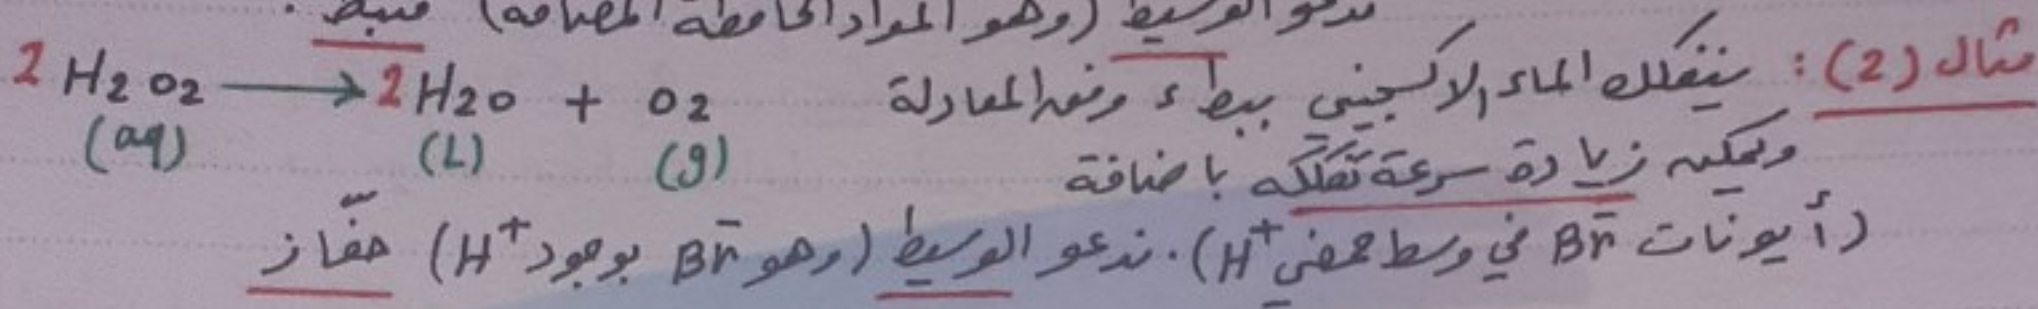 ندعو الوسيط (وهو المواد الحافظة المضافة) مثبط .
مثال (2) : يتفكك الماء الاكسجيني ببطء وفق المعادلة 2 H2O2 → 2 H2O + O2
(aq) (L) (g)
ويمكن زيادة سرعة تفككه باضافة
(أيونات Br̄ في وسط حمضي H+). ندعو الوسيط (وهو Br̄ بوجود H+) حفّاز